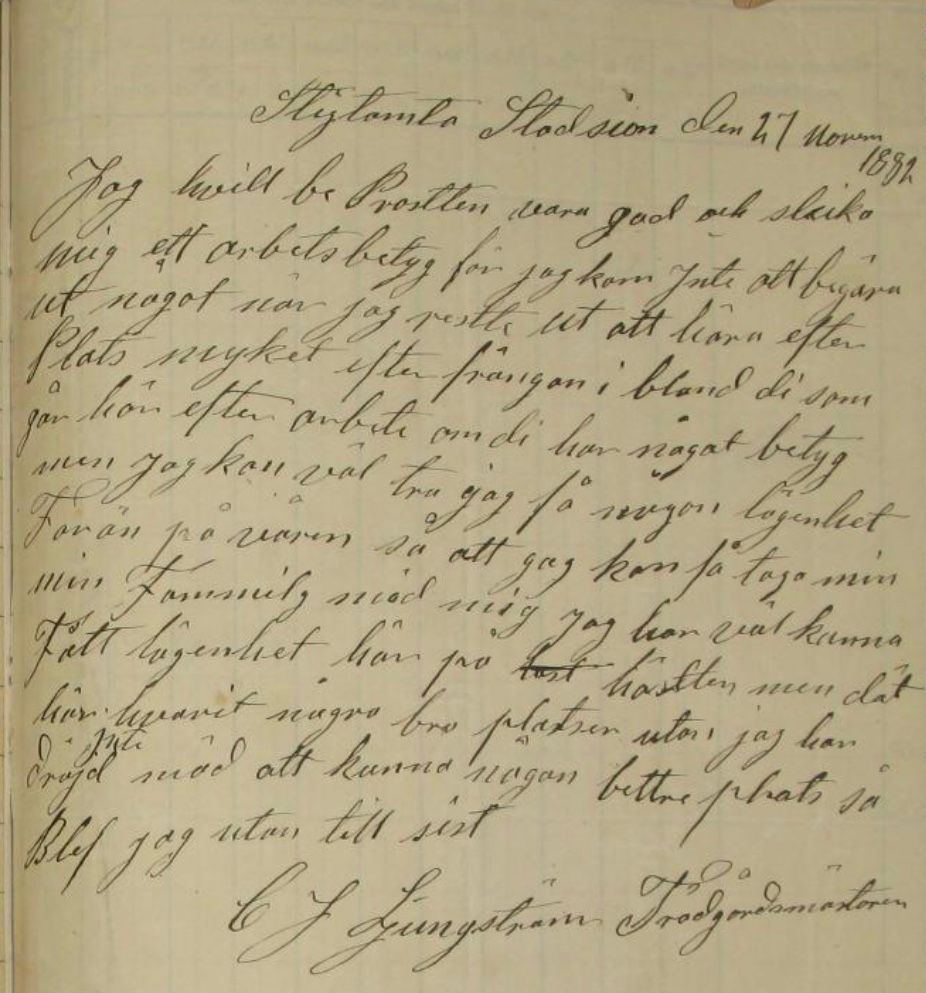 Stigtomta Stadsion den 27 Novem
1882
Jag hvill be Prostten vara god och skika
mig ett arbetsbetyg för jag kom Inte att begära
ut något när jag restte ut att höra efter
Plats myket efter frångan i bland di som
går här efter arbete om di har något betyg
men jag kan väl tro jag få någon lägenhet
Förän på våren så att jag kan få taga min
min Fammilg mäd mig jag har väl kunna
Fått lägenhet här på höstten men dät
har hvarit några bra platser utan jag har
Inte
dröjd mäd att kunna någon bettre plats så
Blef jag utan till sist
C J Ljungström Trädgårdsmästaren